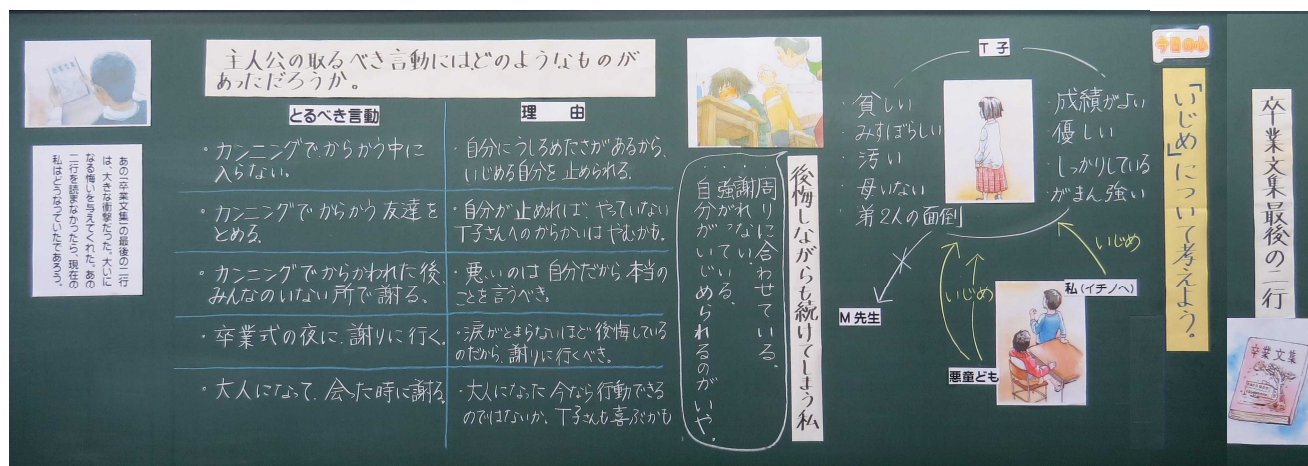 卒業文集最後の二行
卒業文集
今日の心
「いじめ」について考えよう。
T子
・貧しい
・みすぼらしい
・汚い
・母いない
・弟2人の面倒
・成績がよい
・優しい
・しっかりしている
・がまん強い
いじめ
私(イチノヘ)
いじめ
悪童ども
M先生
後悔しながらも続けてしまう私
周りに合わせている。
謝れない。
強がっている。
自分がいじめられるのがいや。
主人公の取るべき言動には、どのようなものが
あっただろうか。
とるべき言動
理由
・カンニングでからかう中に
入らない。
・自分にうしろめたさがあるから、
いじめる自分を止められる。
・カンニングでからかう友達を
とめる。
・自分が止めれば、やっていない
T子さんへのからかいはやむかも。
・カンニングでからかわれた後、
みんなのいない所で謝る。
・悪いのは自分だから本当の
ことを言うべき。
・卒業式の夜に、謝りに行く。
・涙がとまらないほど後悔している
のだから、謝りに行くべき。
・大人になって、会った時に謝る。
・大人になった今なら行動できる
のではないか、T子さんも喜ぶかも
あの「卒業文集」の最後の二行
は、大きな衝撃だった。大いに
なる悔いを与えてくれた。あの
二行を読まなかったら、現在の
私はどうなっていたであろう。